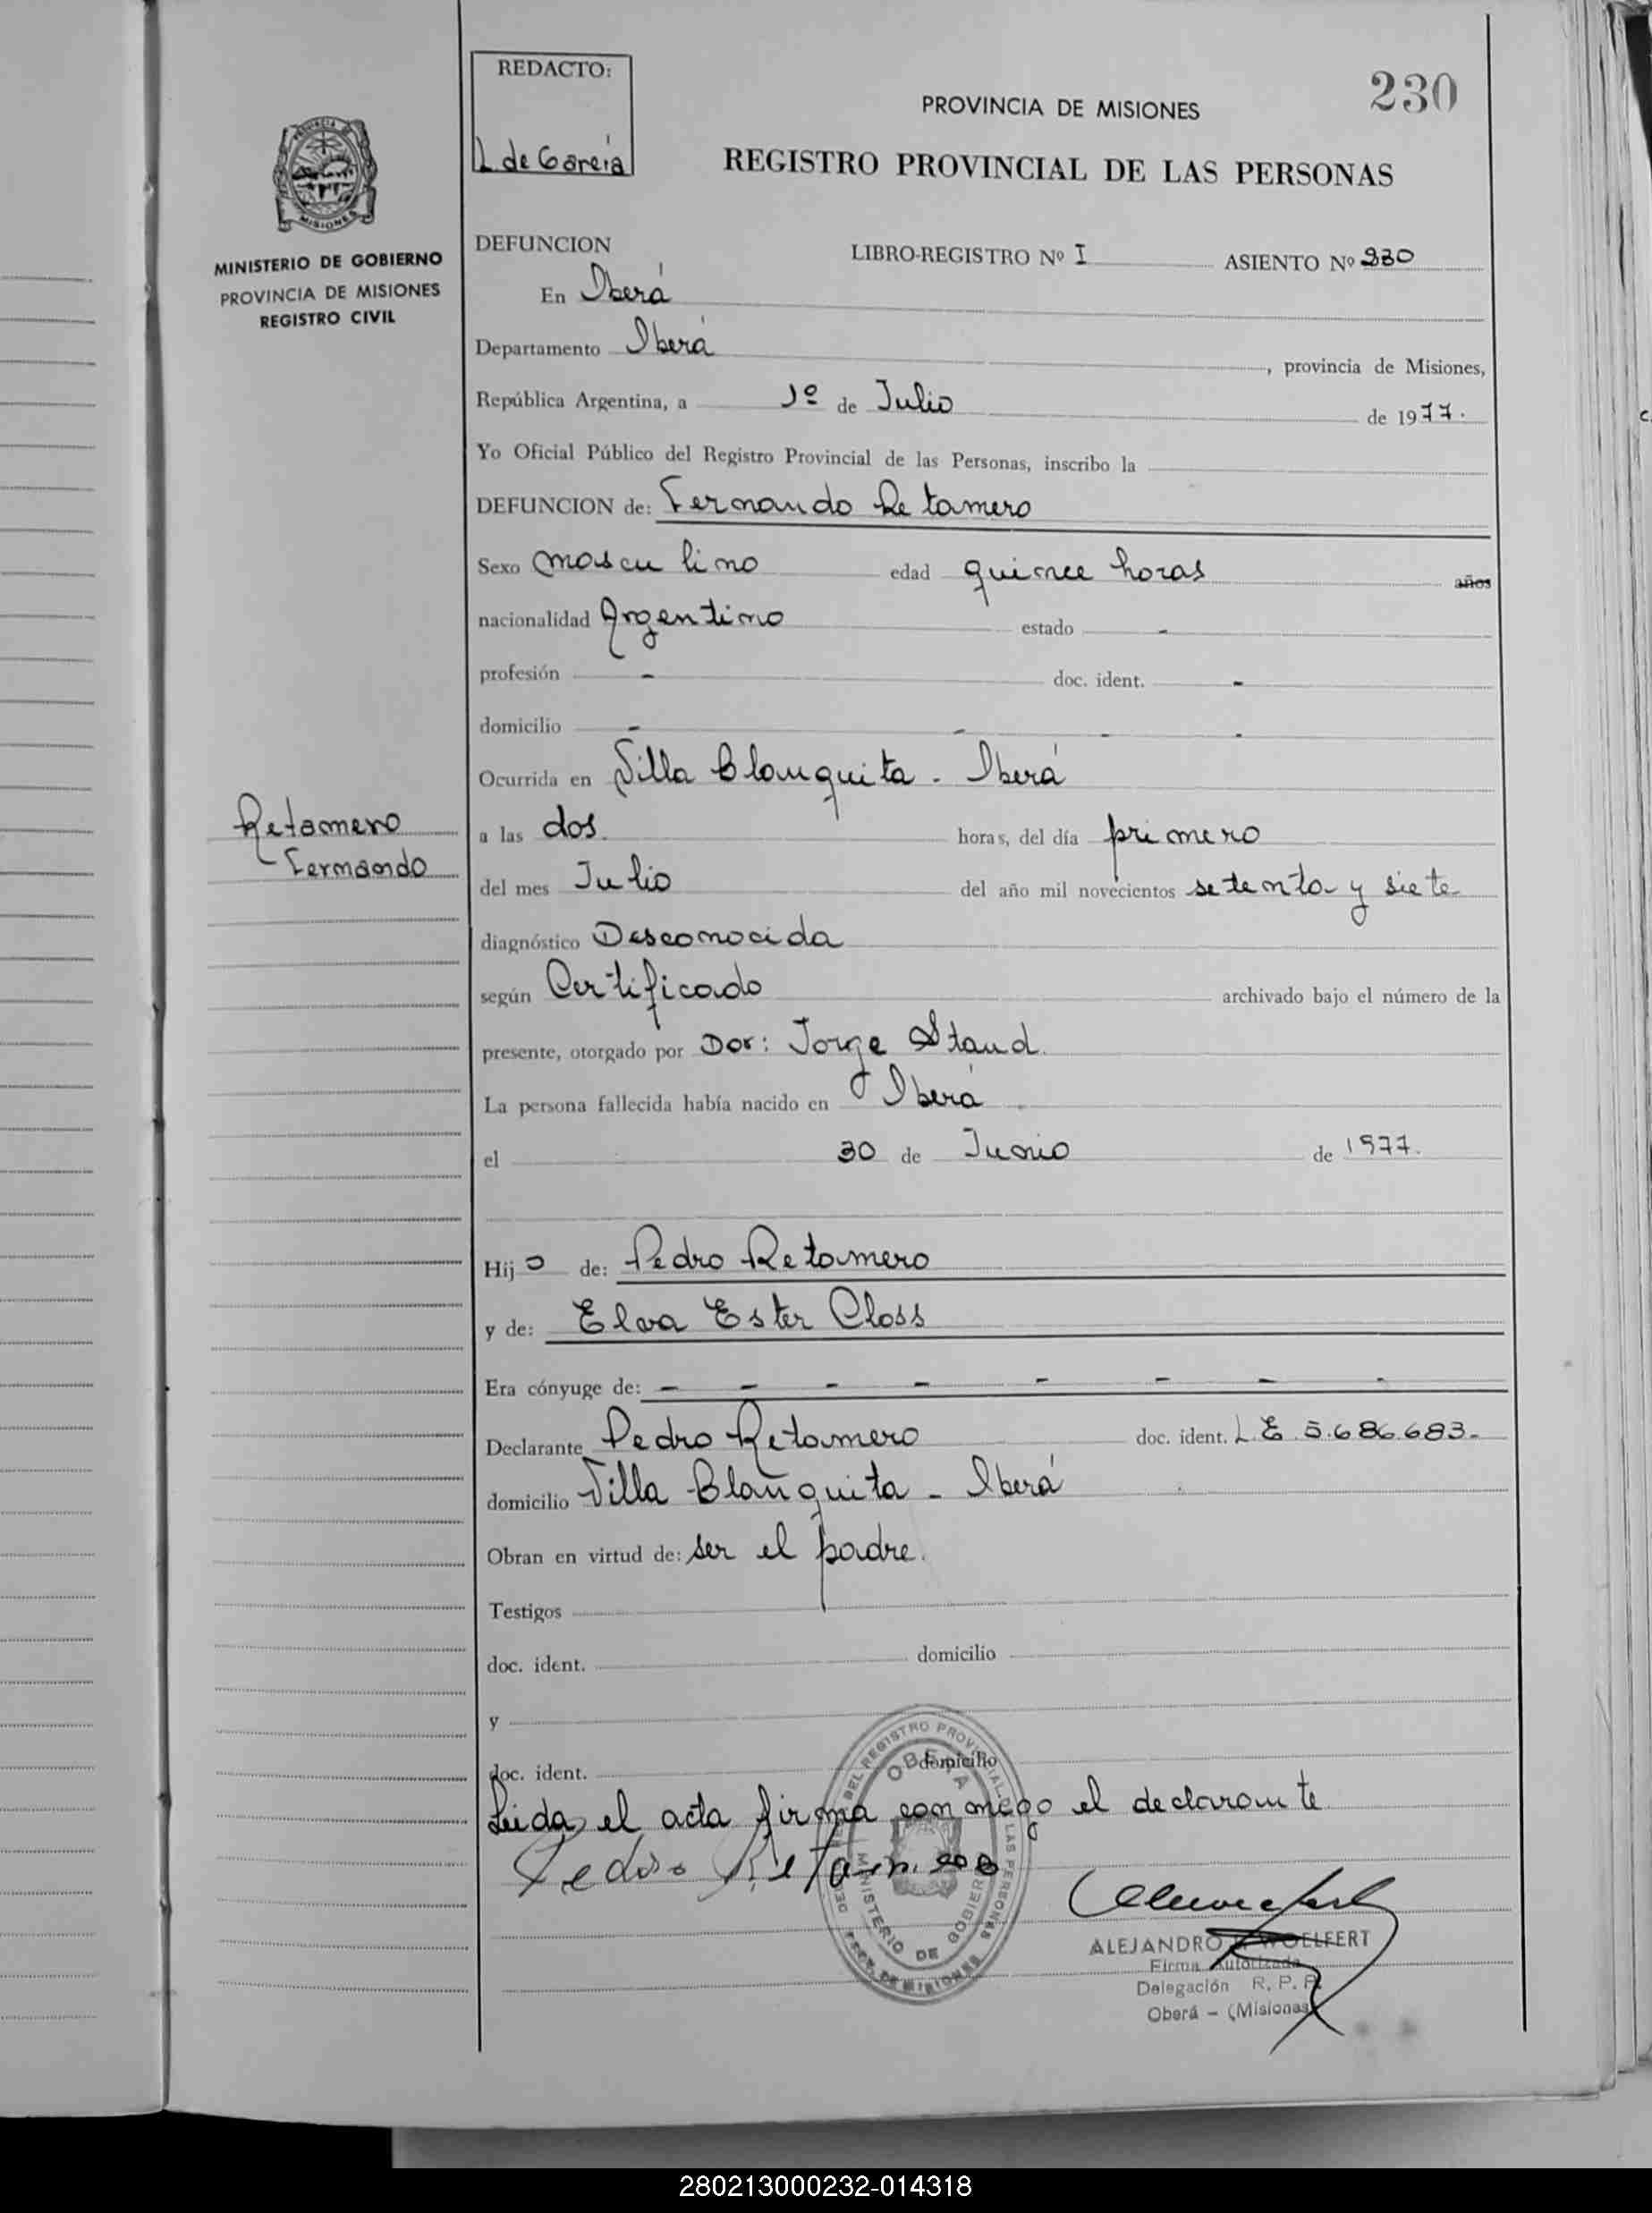 REDACTO:
L. de García
230
PROVINCIA DE MISIONES
REGISTRO PROVINCIAL DE LAS PERSONAS
MISIONES
MINISTERIO DE GOBIERNO
PROVINCIA DE MISIONES
REGISTRO CIVIL
DEFUNCION LIBRO-REGISTRO Nº I ASIENTO Nº 230
En Oberá
Departamento Oberá, provincia de Misiones,
República Argentina, a 1º de Julio de 1977.
Yo Oficial Público del Registro Provincial de las Personas, inscribo la
DEFUNCION de: Fernando Retamero
Sexo masculino edad quince horas años
nacionalidad Argentino estado -
profesión - doc. ident. -
domicilio - - - -
Ocurrida en Villa Blanquita - Oberá
Retamero
Fernando
a las dos. horas, del día primero
del mes Julio del año mil novecientos setenta y siete
diagnóstico Desconocida
según Certificado archivado bajo el número de la
presente, otorgado por Dor: Jorge Staud.
La persona fallecida había nacido en Oberá
el 30 de Junio de 1977.
Hijo de: Pedro Retamero
y de: Elva Ester Closs
Era cónyuge de: - - - - - - - -
Declarante Pedro Retamero doc. ident. L.E. 5.686.683.-
domicilio Villa Blanquita - Oberá
Obran en virtud de: ser el padre.
Testigos
doc. ident. domicilio
y
doc. ident. domicilio
Leida el acta firma conmigo el declarante
Pedro Retamero
OBERA
MINISTERIO DE GOBIERNO
ALEJANDRO WOELFERT
Firma Autorizada
Delegación R. P. P.
Oberá - (Misiones)
280213000232-014318